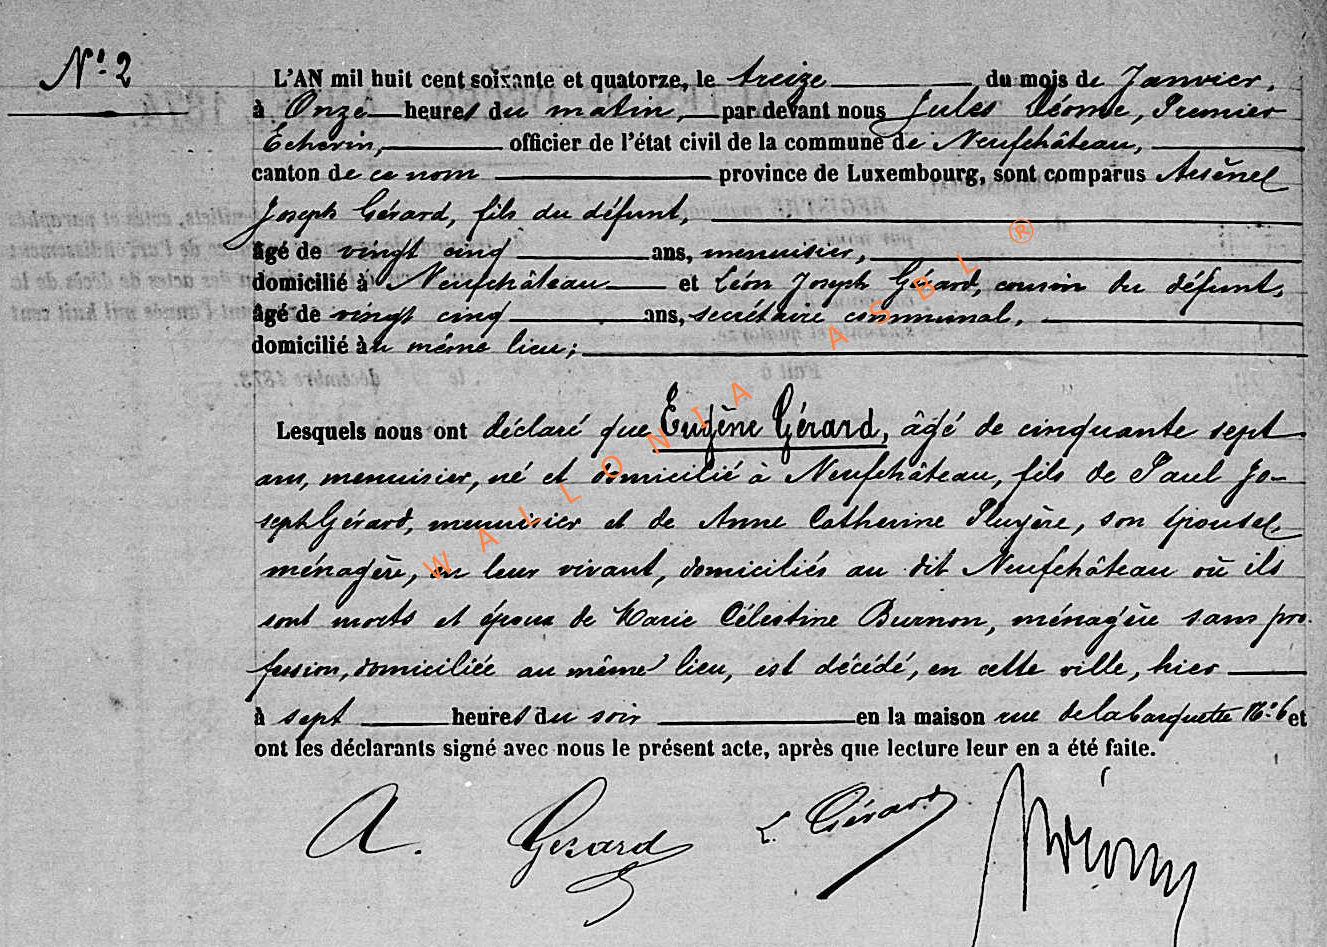 N° 2
L'AN mil huit cent soixante et quatorze, le treize du mois de Janvier,
à Onze heures du matin, par devant nous Jules Léome, Premier
Echevin, officier de l'état civil de la commune de Neufchâteau,
canton de ce nom province de Luxembourg, sont comparus Arsène
Joseph Gérard, fils du défunt,
âgé de vingt cinq ans, menuisier,
domicilié à Neufchâteau et Léon Joseph Gérard, cousin du défunt,
âgé de vingt cinq ans, secrétaire communal,
domicilié au même lieu;
Lesquels nous ont déclaré que Eugène Gérard, âgé de cinquante sept
ans, menuisier, né et domicilié à Neufchâteau, fils de Paul Jo-
seph Gérard, menuisier et de Anne Catherine Pluyère, son épouse,
ménagère, en leur vivant, domiciliés au dit Neufchâteau où ils
sont morts et époux de Marie Célestine Burnon, ménagère sans pro-
fession, domiciliée au même lieu, est décédé, en cette ville, hier
à sept heures du soir en la maison rue de la barquette N° 6 et
ont les déclarants signé avec nous le présent acte, après que lecture leur en a été faite.
A. Gérard L. Gérard
WALLONIA ASBL ®